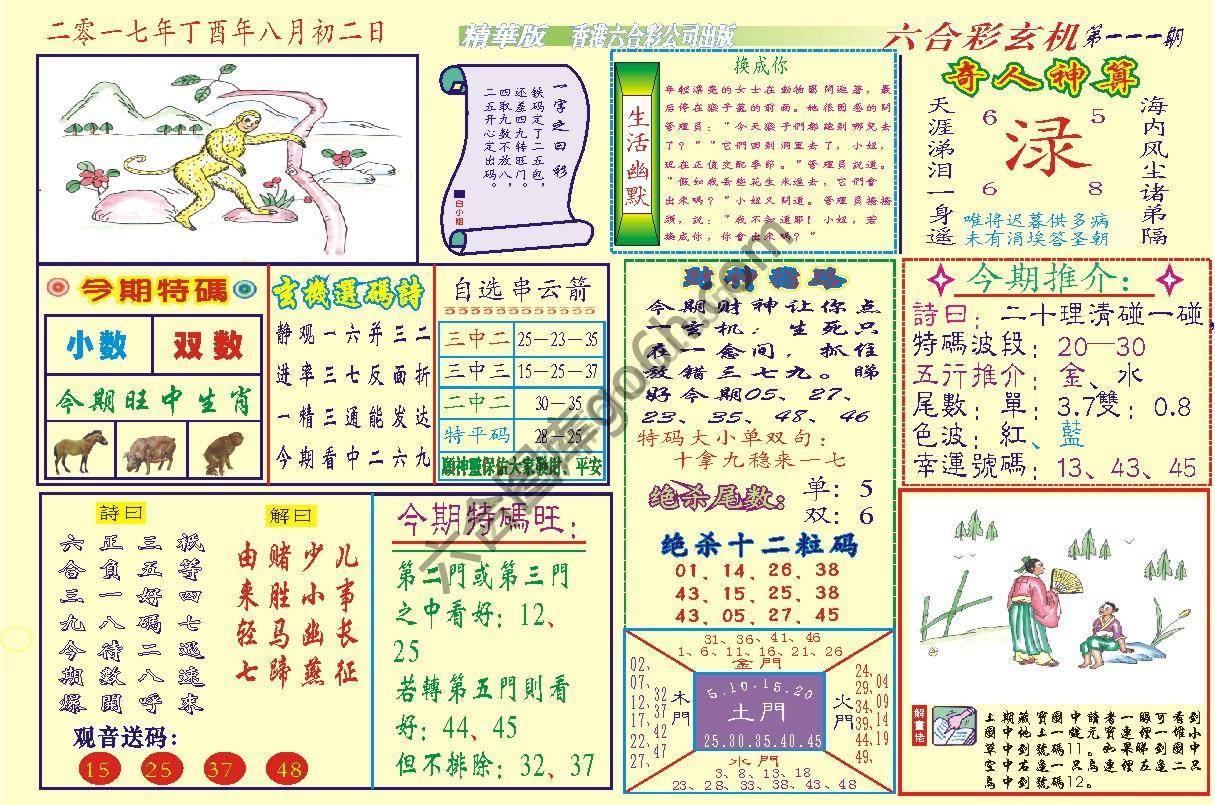 二零一七年丁酉年八月初二日
精華版 香港六合彩公司出版
六合彩玄机 第一一一期
一字之曰彩
铁码定了二五包，
还差四九转旺门。
四取九数不放八，
二五开心定出码。
白小姐
生活幽默
换成你
年轻漂亮的女士在動物園閒逛著，最
后停在猴子籠的前面。她很困惑的問
管理員：“今天猴子們都跑到哪兒去
了？”“它們回到洞里去了，小姐，
现在正值交配季節。”管理員說道。
“假如我丢些花生米進去，它們會
出來嗎？”小姐又問道。管理員搔搔
頭，説：“我不知道耶！小姐，若
換成你，你會出來嗎？”
奇人神算
天涯涕泪一身遥
6 5
渌
6 8
海内风尘诸弟隔
唯将迟暮供多病
未有涓埃答圣朝
今期特碼
小数 双数
今期旺中生肖
玄機選碼詩
静观一六并三二
进率三七反面折
一精三通能发达
今期看中二六九
自选串云箭
三中二 25—23—35
三中三 15—25—37
二中二 30—35
特平码 28—25
願神靈保佑大家發財、平安
财神指路
今期财神让你点
一玄机：生死只
在一念间，抓住
放错三七九。睇
好今期05、27、
23、35、48、46
特码大小单双句：
十拿九稳来一七
绝杀尾数： 单：5
双：6
绝杀十二粒码
01、14、26、38
43、15、25、38
43、05、27、45
今期推介：
詩曰：二十理清碰一碰，
特碼波段：20—30
五行推介：金、水
尾數：單：3.7雙：0.8
色波：紅、藍
幸運號碼：13、43、45
詩曰
六合三九今期爆
正負一八待數開
三五好碼二八呼
祇等四七迅速來
解曰
由来轻七
赌胜马蹄
少小幽燕
儿事长征
观音送码：
15 25 37 48
今期特碼旺：
第二門或第三門
之中看好：12、
25
若轉第五門則看
好：44、45
但不排除：32、37
31、36、41、46
1、6、11、16、21、26
金門
02、07、12、17、22、27、
32、37、42、47
木門
5.10.15.20
土門
25.30.35.40.45
火門
24、29、34、39、44、49、
04、09、14、19
水門
3、8、13、18
23、28、33、38、43、48
解畫佬
上期藏寳圖中讀者一眼可看到
圖中地上一錠元寳連裡一堆小
草中到號碼11。如果睇到圖中
空中右邊一只鳥連裡左邊二只
鳥中到號碼12。
六合图库go6h.com